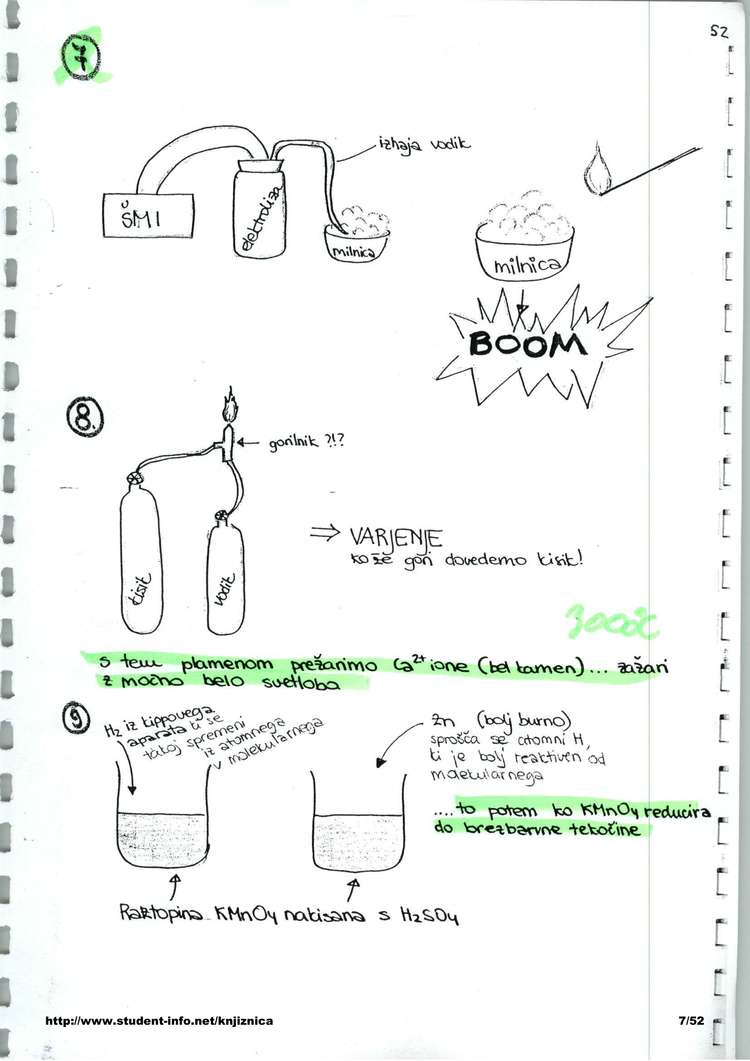 52
7
izhaja vodik
ŠMI
elektroliza
milnica
milnica
BOOM
8.
gorilnik ?!?
kisik
vodik
⇒ VARJENJE
ko že gori dovedemo kisik!
3000°C
s tem plamenom prežarimo Ca²⁺ ione (bel kamen)... zažari
z močno belo svetlobo
9
H₂ iz kippovega
aparata ki se
takoj spremeni
iz atomnega
v molekularnega
Zn (bolj burno)
sprošča se atomni H,
ki je bolj reaktiven od
molekularnega
....to potem ko KMnO₄ reducira
do brezbarvne tekočine
Raztopina KMnO₄ nakisana s H₂SO₄
http://www.student-info.net/knjiznica
7/52